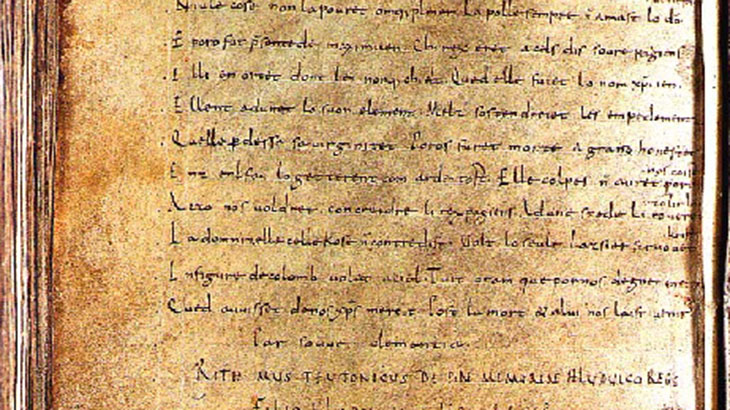 Niule cose non la pouret omqi pleier. La polle sempre n̄ amast lo do
E poro fut p̄sentede maximiien. Chi rex eret a cels dis soure pagiens.
I lli en ortet dont lei nonq; chielt. Qued elle fuiet lo nom xp̄iien.
E llent adunet lo suon element. Melz sostendreiet les empedementz
Quelle p̱desse sa uirginitet. Poros furet morte a grand honestet
nos coist
E nz enl fou lo getterent com arde tost. Elle colpes n̄ auret por
tolir
A czo nos uoldret concreidre li rex pagiens. Ad une spede li roueret
krist
L a domnizelle celle kose n̄ contredist. Volt lo seule lazsier si ruouet
I n figure de colomb uolat a ciel. Tuit oram que por nos degnet
Qued auuisset de nos xp̄s mercit. Post la mort & a lui nos laist uenir
Par souue clementia.
RITHMUS TEUTONICUS DE PIAE MEMORIAE HLUDUICO REGE